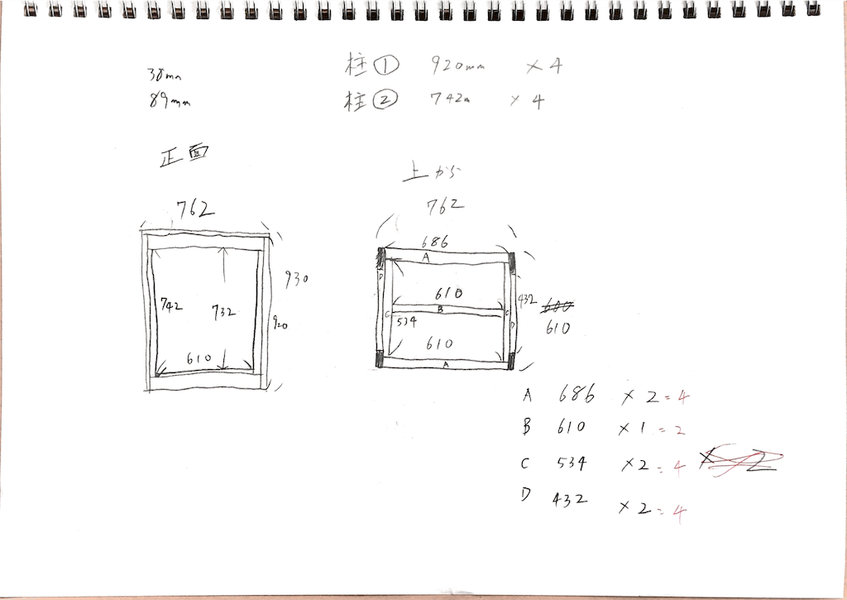 38mm
89mm
柱① 920mm ×4
柱② 742m ×4
正面
762
930
742
732
920
610
上から
762
686
A
D
610
432
600
610
C
B
C
534
D
610
A
A 686 ×2=4
B 610 ×1=2
C 534 ×2=4 ×2
D 432 ×2=4